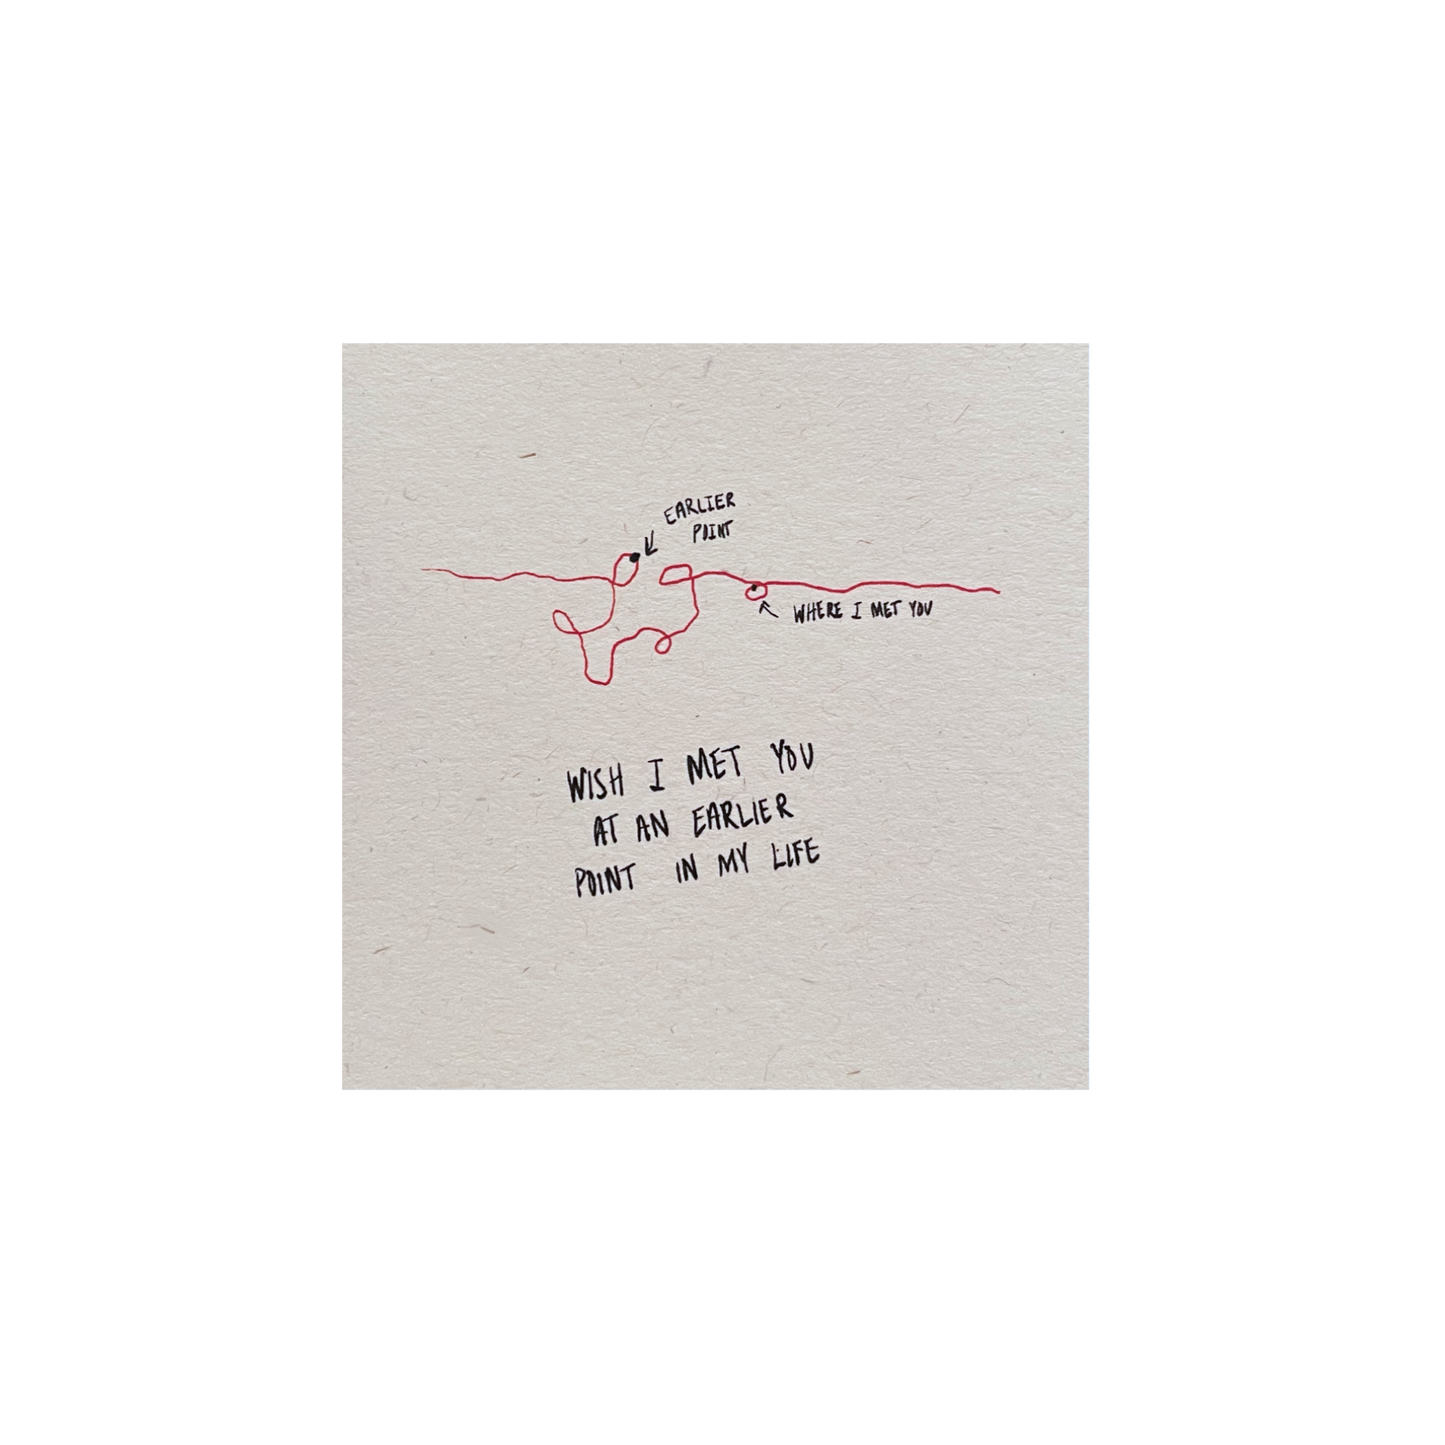 EARLIER
POINT
WHERE I MET YOU
WISH I MET YOU
AT AN EARLIER
POINT IN MY LIFE